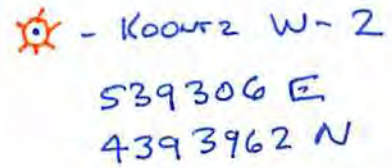 - KOONTZ W-2
539306 E
4393962 N